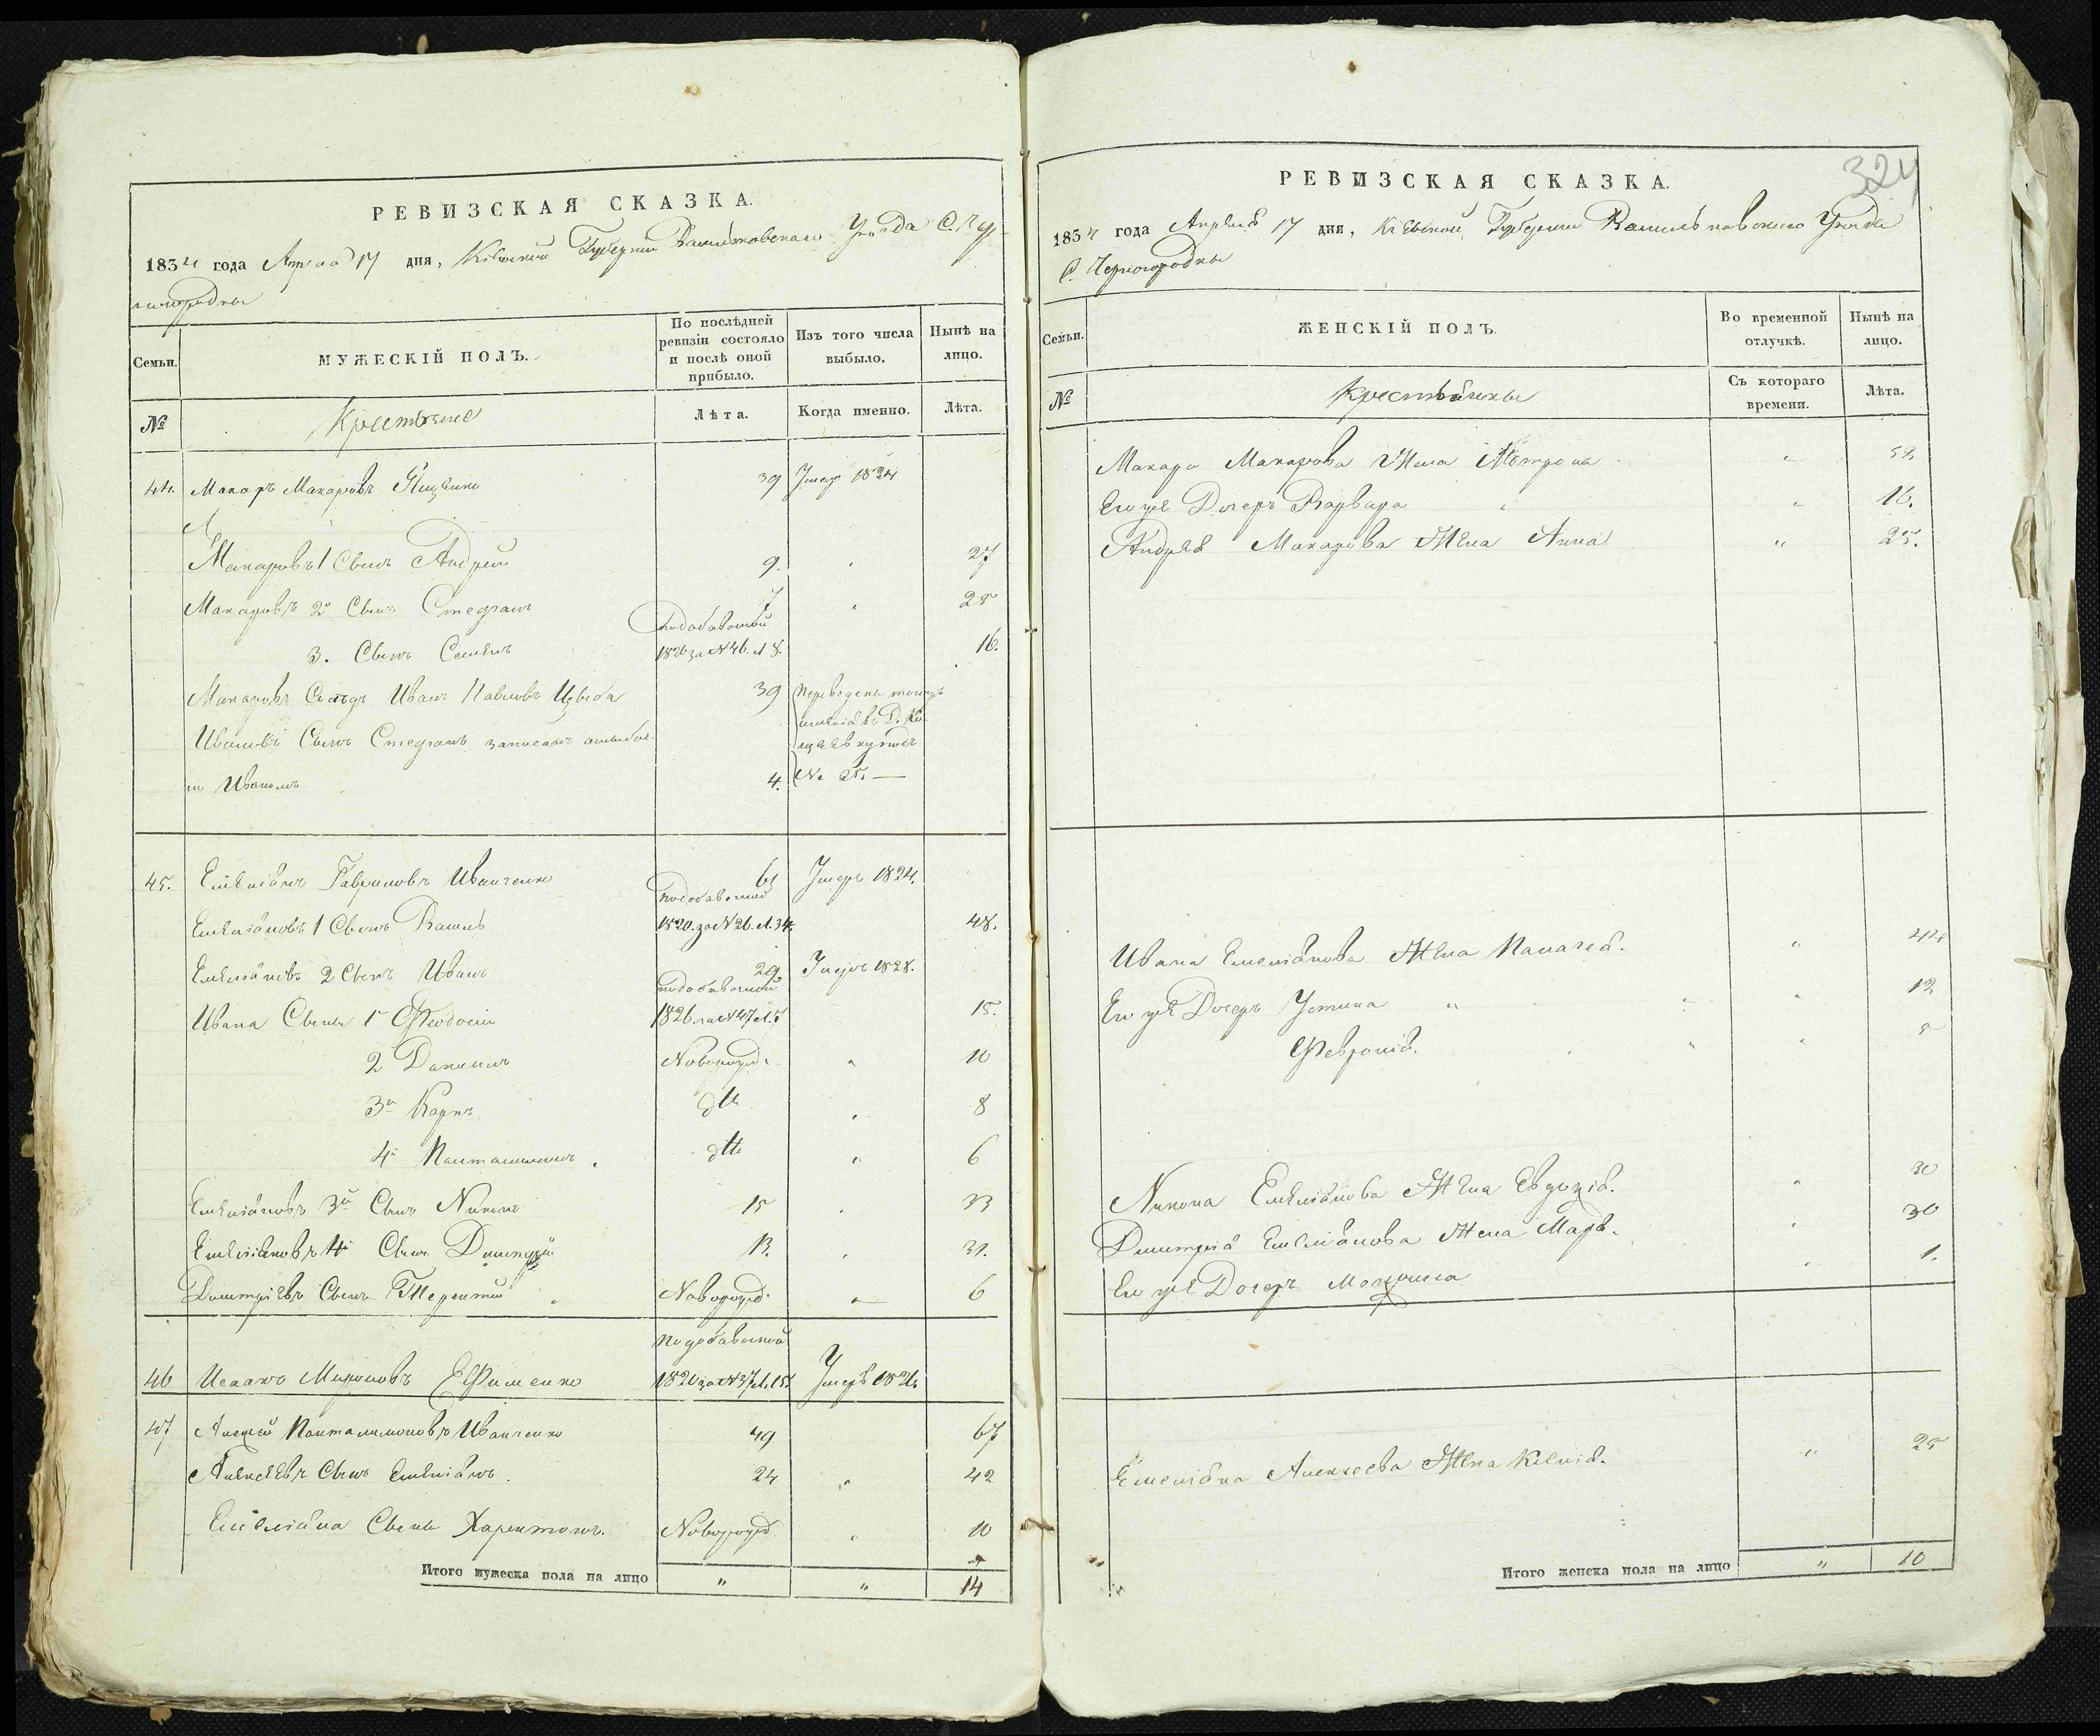 РЕВИЗСКАЯ СКАЗКА.
1834 года Апреля 17 дня, Кіевской Губерніи Васильковскаго Уезда С. Чер
ногородки
Семьи.
МУЖЕСКІЙ ПОЛЪ.
По послѣдней ревизіи состояло и послѣ оной прибыло.
Изъ того числа выбыло.
Нынѣ на лицо.
№
Крестьяне
Лѣта.
Когда именно.
Лѣта.
44. Макаръ Макаровъ 39 Умеръ 1824
Макаровъ 1 Сынъ Андрей 9. 27
Макаровъ 2й Сынъ Стефанъ 7 25
подобавочной
3. Сынъ Семенъ 1826 за №46. л 8. 16.
Макаровъ Сосѣдъ Иванъ Павловъ Цыба 39 Переведены
Ивановъ Сынъ Стефанъ записанъ ошибоч
но Иваномъ 4. № 25. —
45. Емеліанъ Гавриловъ Иванченко 61 Умеръ 1824.
подобавочной
Емеліановъ 1 Сынъ Василь 1820. за №26. л. 34. 48.
Емеліановъ 2 Сынъ Иванъ 29. Умеръ 1828.
подобавочной
Ивана Сыны 1й Феодосій 1826 за №47 л. 5 15.
2 Даниилъ Новорожд. " 10
3й Карпъ дтт " 8
4й Панталимонъ. дтт " 6
Емеліановъ 3й Сынъ Никонъ 15 " 33
Емеліановъ 4й Сынъ Димитрій 13. " 31.
Димитріевъ Сынъ Терентій " Новорожд. " 6
подобавочной
46 Исаакъ Мироновъ Ефименко 1820 за №37 л. 15. Умеръ 1826
47 Алексѣй Панталимоновъ Иванченко 49 67
Алексѣевъ Сынъ Емеліанъ. 24 " 42
Емеліана Сынъ Харитонъ. Новорожд. " 10
Итого мужеска пола на лицо " " 14
324
РЕВИЗСКАЯ СКАЗКА.
1834 года Апреля 17 дня, Кіевской Губерніи Васильковскаго Уезда
С. Черногородки
Семьи.
ЖЕНСКІЙ ПОЛЪ.
Во временной отлучкѣ.
Нынѣ на лицо.
№
Крестьянки
Съ котораго времени.
Лѣта.
Макара Макарова Жена Мотрона " 52
Его же Дочерь Варвара " " 16.
Андрея Макарова Жена Анна " 25.
Ивана Емеліанова Жена Палагея. "
Его же Дочерь Устина " " " 12
Февронія. " " 5
Никона Емеліанова Жена Евдокія. " 30
Димитрія Емеліанова Жена Марія. " 30
Его же Дочерь " 1.
Емеліана Алексеева Жена Ксенія. " 25
Итого женска пола на лицо " 10